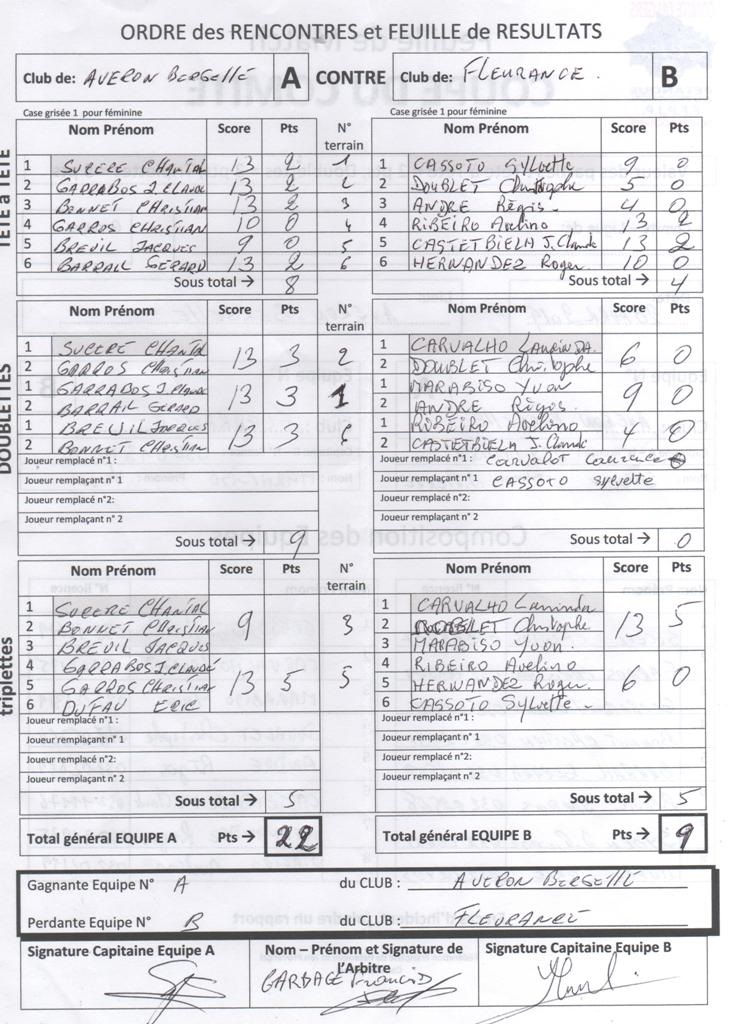 ORDRE des RENCONTRES et FEUILLE de RESULTATS
Club de: AVERON BERGELLE A CONTRE Club de: FLEURANCE. B
Case grisée 1 pour féminine Case grisée 1 pour féminine
TETE à TETE
Nom Prénom Score Pts N° terrain Nom Prénom Score Pts
1 SUCERE CHANTAL 13 2 1 1 CASSOTO Sylvette 9 0
2 GARRABOS J CLAUDE 13 2 2 2 DOUBLET Christophe 5 0
3 BONNET CHRISTIAN 13 2 3 3 ANDRE Régis. 4 0
4 GARROS CHRISTIAN 10 0 4 4 RIBEIRO Avelino 13 2
5 BREUIL JACQUES 9 0 5 5 CASTETBIELA J.Claude 13 2
6 BARRAIL GERARD 13 2 6 6 HERNANDEZ Roger. 10 0
Sous total → 8 Sous total → 4
DOUBLETTES
Nom Prénom Score Pts N° terrain Nom Prénom Score Pts
1 SUCERE CHANTAL 13 3 2 1 CARVALHO LAURINDA. 6 0
2 GARROS CHRISTIAN 2 DOUBLET Christophe
1 GARRABOS J CLAUDE 13 3 1 1 MARABISO Yvon 9 0
2 BARRAIL GERARD 2 ANDRE Régis.
1 BREUIL JACQUES 13 3 1 RIBEIRO Avelino 4 0
2 BONNET CHRISTIAN 2 CASTETBIELA J.Claude
Joueur remplacé n°1 : Joueur remplacé n°1 :
Joueur remplaçant n° 1 Joueur remplaçant n° 1 CASSOTO sylvette
Joueur remplacé n°2: Joueur remplacé n°2:
Joueur remplaçant n° 2 Joueur remplaçant n° 2
Sous total → 9 Sous total → 0
triplettes
Nom Prénom Score Pts N° terrain Nom Prénom Score Pts
1 SUCERE CHANTAL 9 3 1 CARVALHO Laurinda 13 5
2 BONNET CHRISTIAN 2 DOUBLET Christophe
3 BREUIL JACQUES 3 MARABISO Yvon.
4 GARRABOS J CLAUDE 13 5 5 4 RIBEIRO Avelino 6 0
5 GARROS CHRISTIAN 5 HERNANDEZ Roger.
6 DUFAU ERIC 6 CASSOTO Sylvette
Joueur remplacé n°1 : Joueur remplacé n°1 :
Joueur remplaçant n° 1 Joueur remplaçant n° 1
Joueur remplacé n°2: Joueur remplacé n°2:
Joueur remplaçant n° 2 Joueur remplaçant n° 2
Sous total → 5 Sous total → 5
Total général EQUIPE A Pts → 22 Total général EQUIPE B Pts → 9
Gagnante Equipe N° A du CLUB : AVERON BERGELLE
Perdante Equipe N° B du CLUB : FLEURANCE
Signature Capitaine Equipe A Nom – Prénom et Signature de l'Arbitre Signature Capitaine Equipe B
GARDAGE Francis